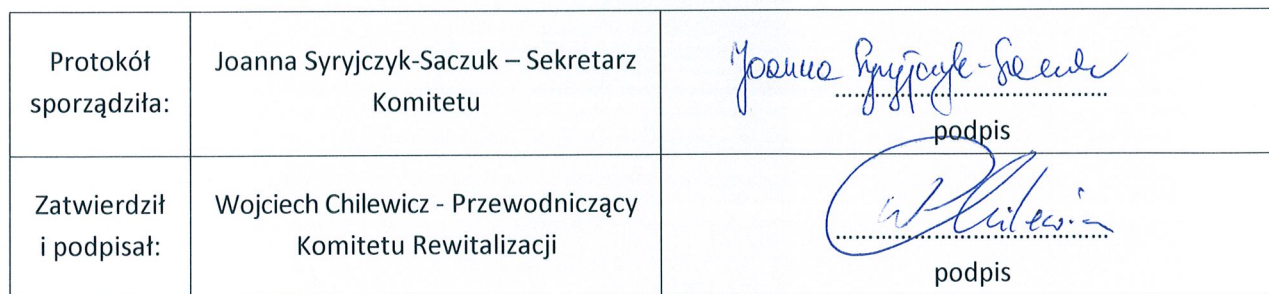 Protokół
sporządziła:
Joanna Syryjczyk-Saczuk – Sekretarz
Komitetu
Joanna Syryjczyk-Saczuk
podpis
Zatwierdził
i podpisał:
Wojciech Chilewicz - Przewodniczący
Komitetu Rewitalizacji
W Chilewicz
podpis